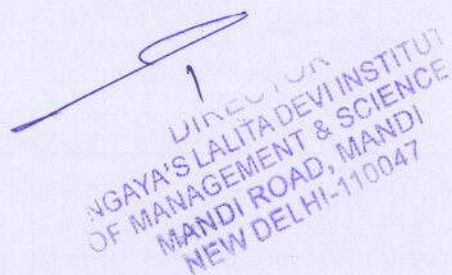 DIRECTOR
NGAYA'S LALITA DEVI INSTITUT
OF MANAGEMENT & SCIENCE
MANDI ROAD, MANDI
NEW DELHI-110047